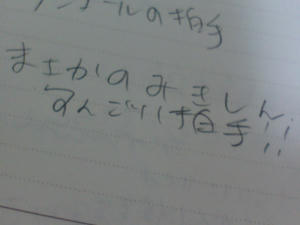 ールの拍手
まさかのみきしん
すんごい拍手!!